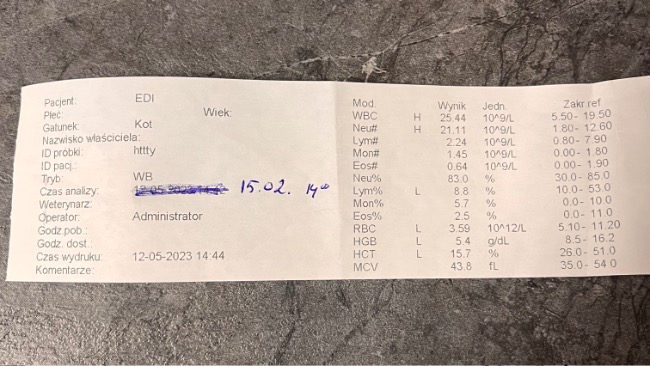 Pacjent: EDI
Płeć: Wiek:
Gatunek: Kot
Nazwisko właściciela:
ID próbki: httty
ID pacj.:
Tryb: WB
Czas analizy: 15.02. 14⁰⁰
Weterynarz:
Operator: Administrator
Godz pob.:
Godz. dost.:
Czas wydruku: 12-05-2023 14:44
Komentarze:
Mod. Wynik Jedn. Zakr ref
WBC H 25.44 10^9/L 5.50 - 19.50
Neu# H 21.11 10^9/L 1.80 - 12.60
Lym# 2.24 10^9/L 0.80 - 7.90
Mon# 1.45 10^9/L 0.00 - 1.80
Eos# 0.64 10^9/L 0.00 - 1.90
Neu% 83.0 % 30.0 - 85.0
Lym% L 8.8 % 10.0 - 53.0
Mon% 5.7 % 0.0 - 10.0
Eos% 2.5 % 0.0 - 11.0
RBC L 3.59 10^12/L 5.10 - 11.20
HGB L 5.4 g/dL 8.5 - 16.2
HCT L 15.7 % 26.0 - 51.0
MCV 43.8 fL 35.0 - 54.0